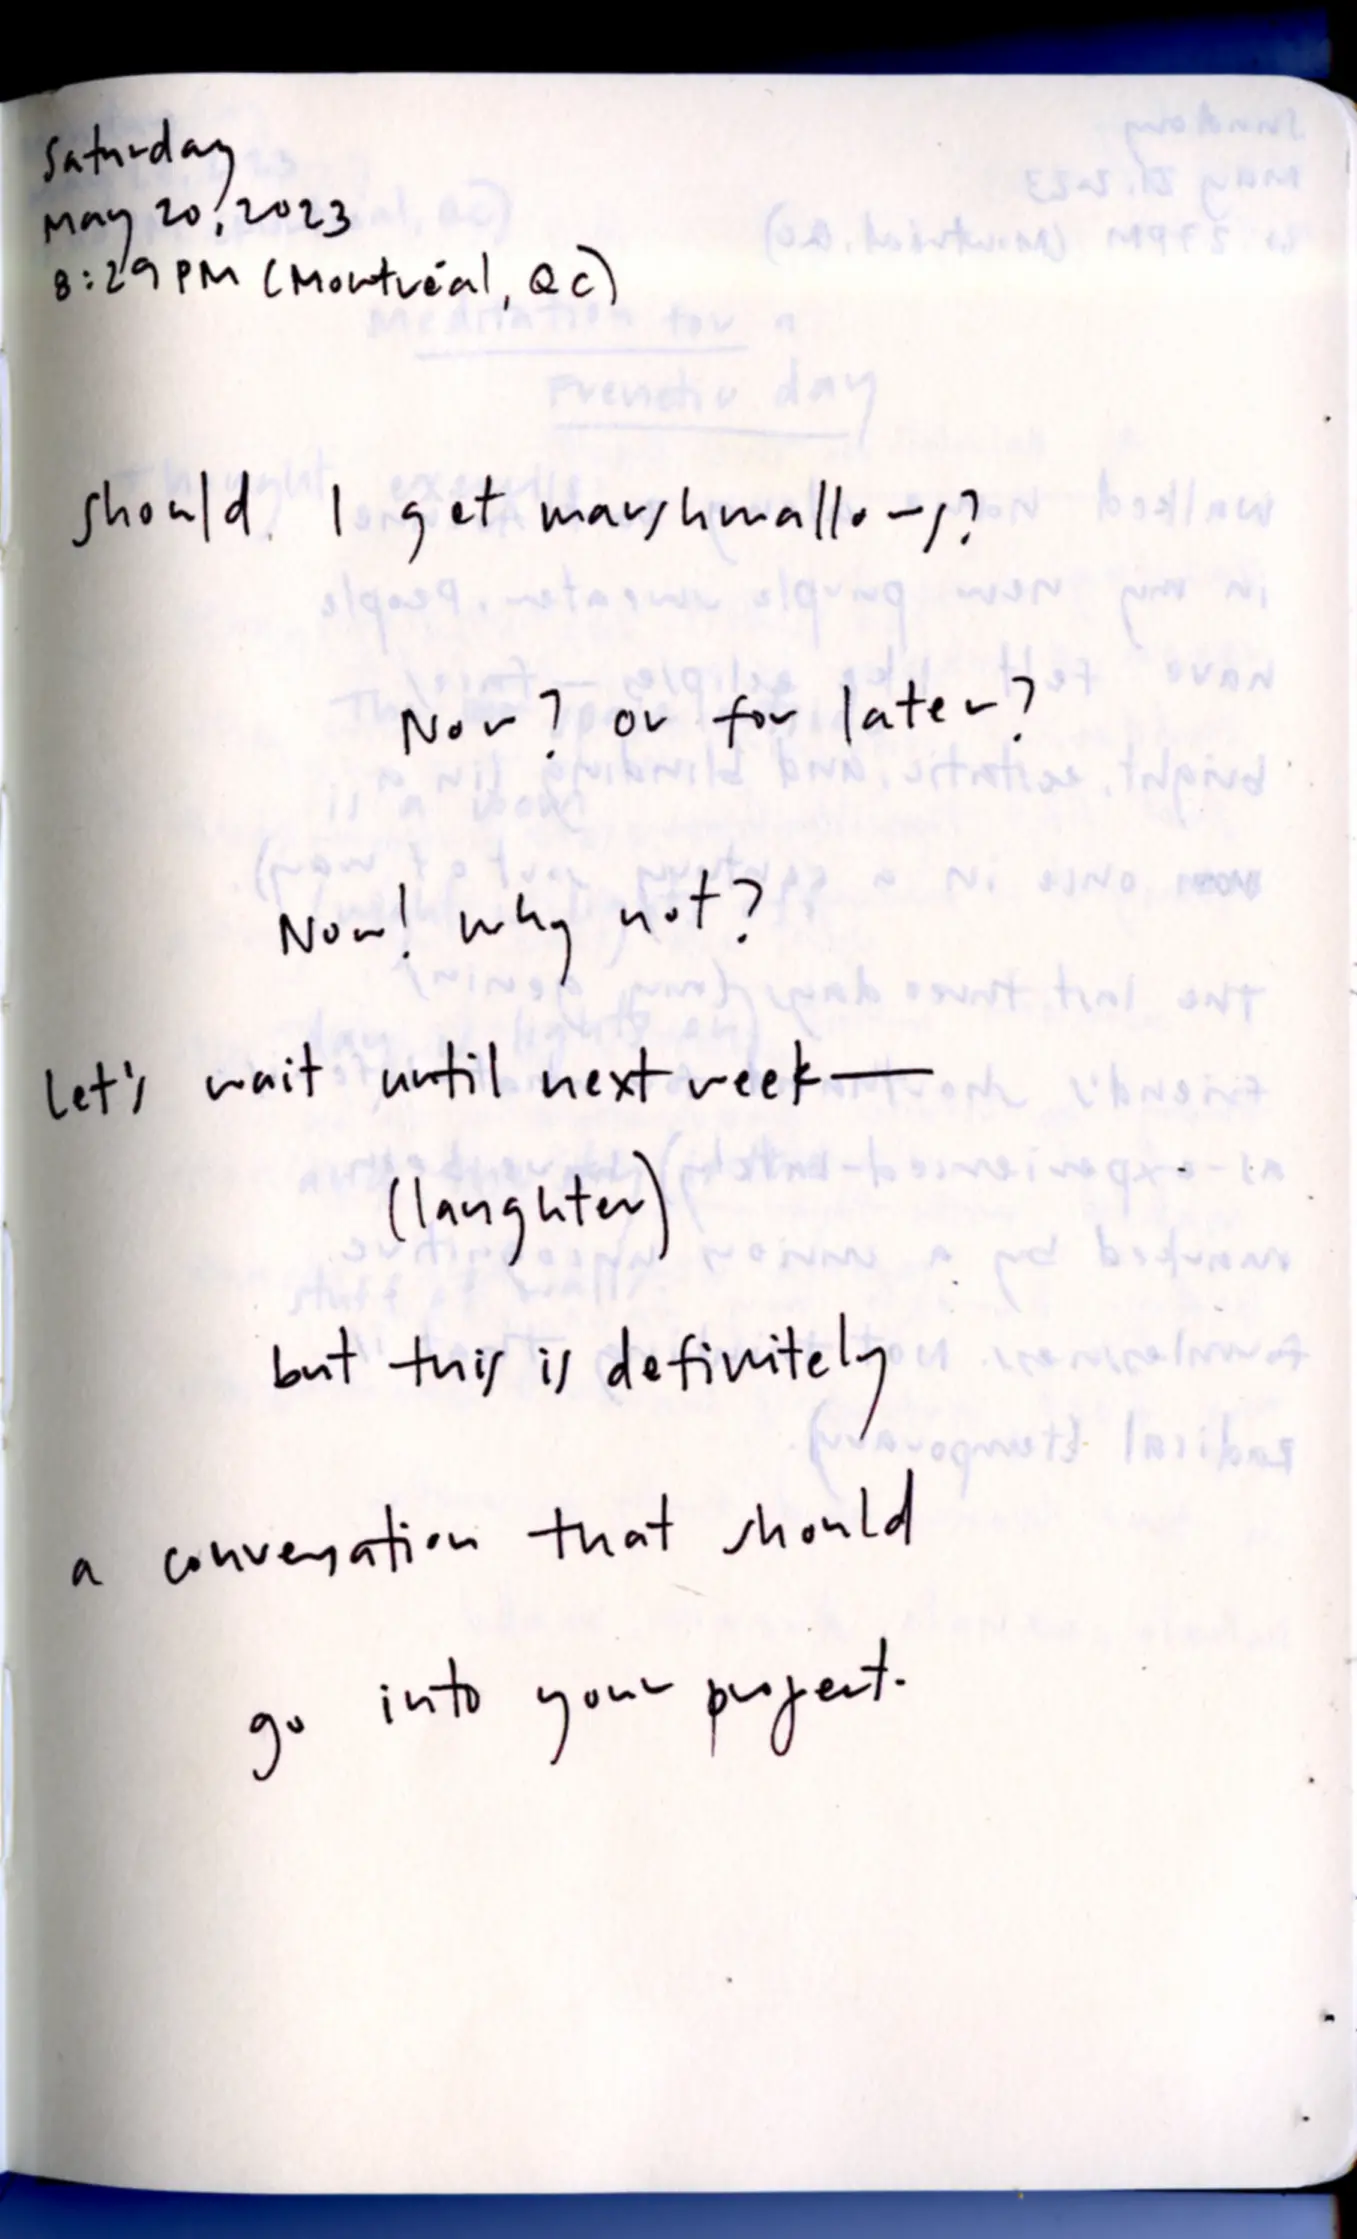 Saturday
May 20, 2023
8:29 PM (Montréal, QC)
should I get marshmallows?
Now? or for later?
Now! why not?
Let's wait until next week—
(laughter)
but this is definitely
a conversation that should
go into your project.